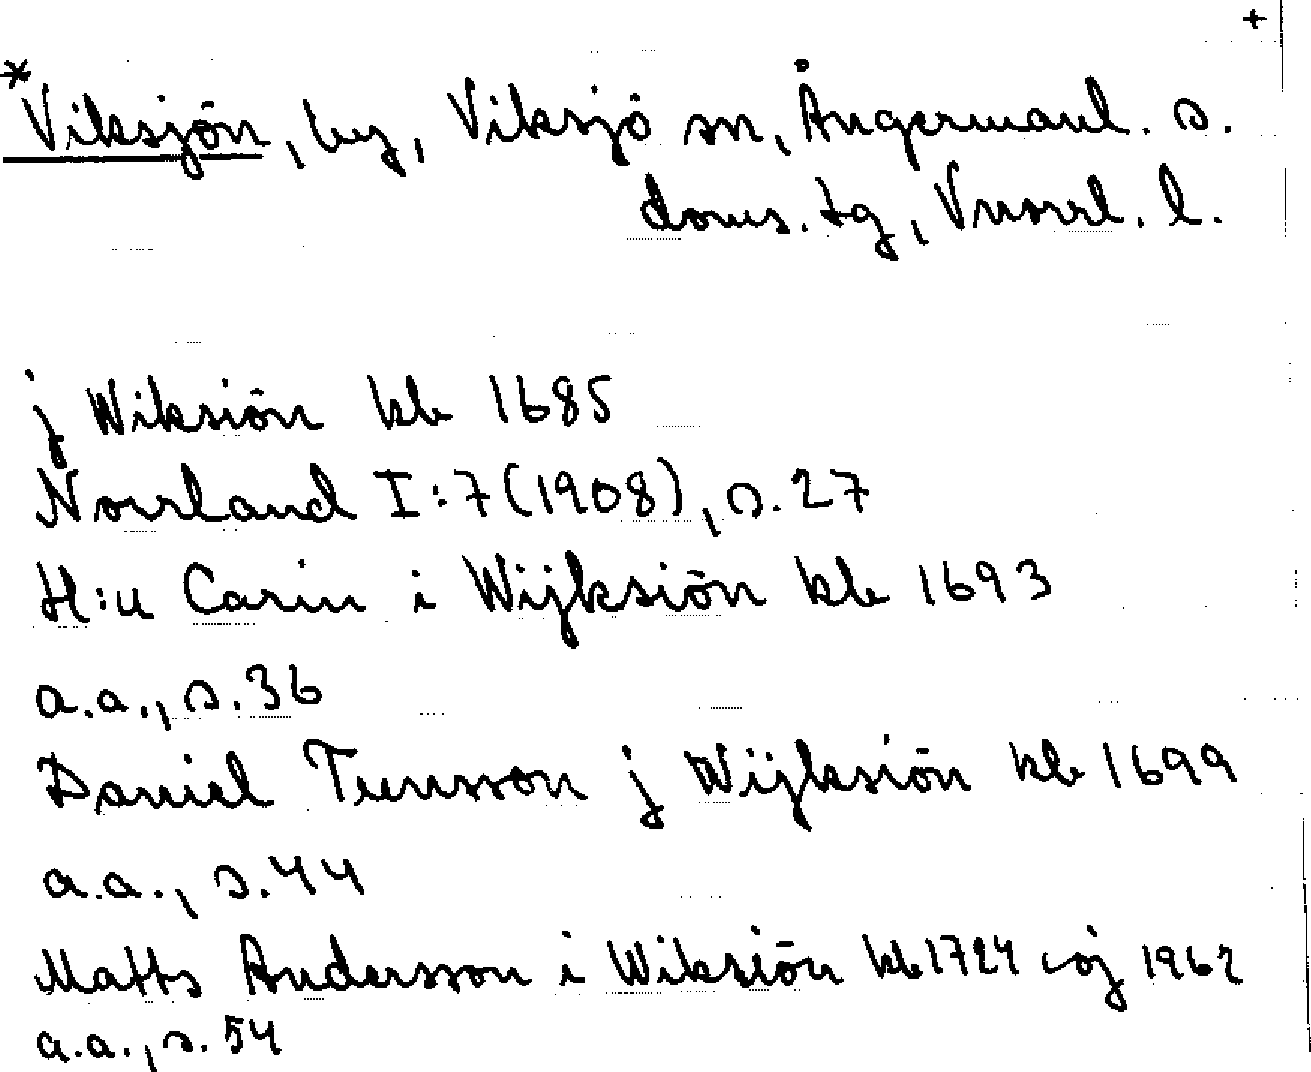 +
*Viksjön, by, Viksjö sn, Ångermanl. s.
doms. tg, Vnorrl. l.
j Wiksiön kb 1685
Norrland I:7 (1908), s. 27
H:u Carin i Wijksiön kb 1693
a.a., s. 36
Daniel Tunsson j Wijksiön kb 1699
a.a., s. 44
Matts Andersson i Wiksiön kb 1724 1962
a.a., s. 54